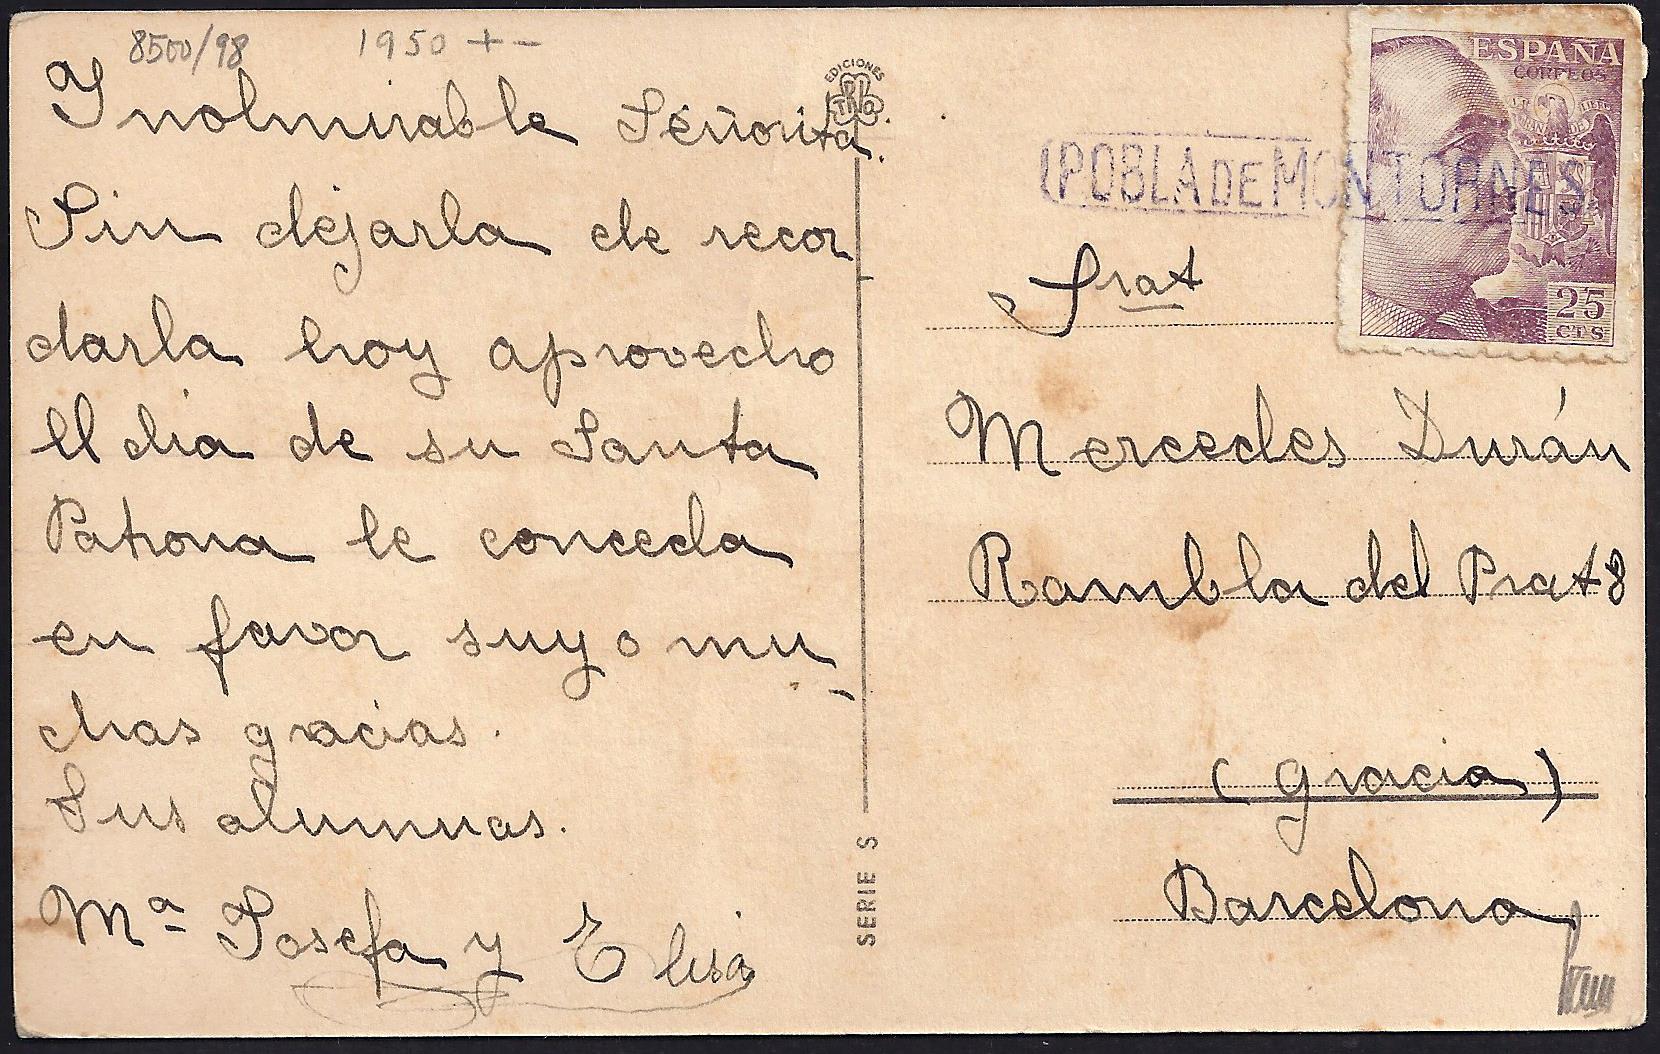 8500/98 1950 + -
Ynolmirable Séñorita.
Sin dejarla de recor
darla hoy aprovecho
El dia de su Santa
Patrona le conceda
en favor suyo mu-
chas gracias.
Sus alumnas.
Mª Josefa y Elisa
EDICIONES
SERIE S
ESPAÑA
CORREOS
25
CTS
POBLA DE MONTORNES
Srat
Mercedes Durán
Rambla del Prat 8
(Gracia)
Barcelona